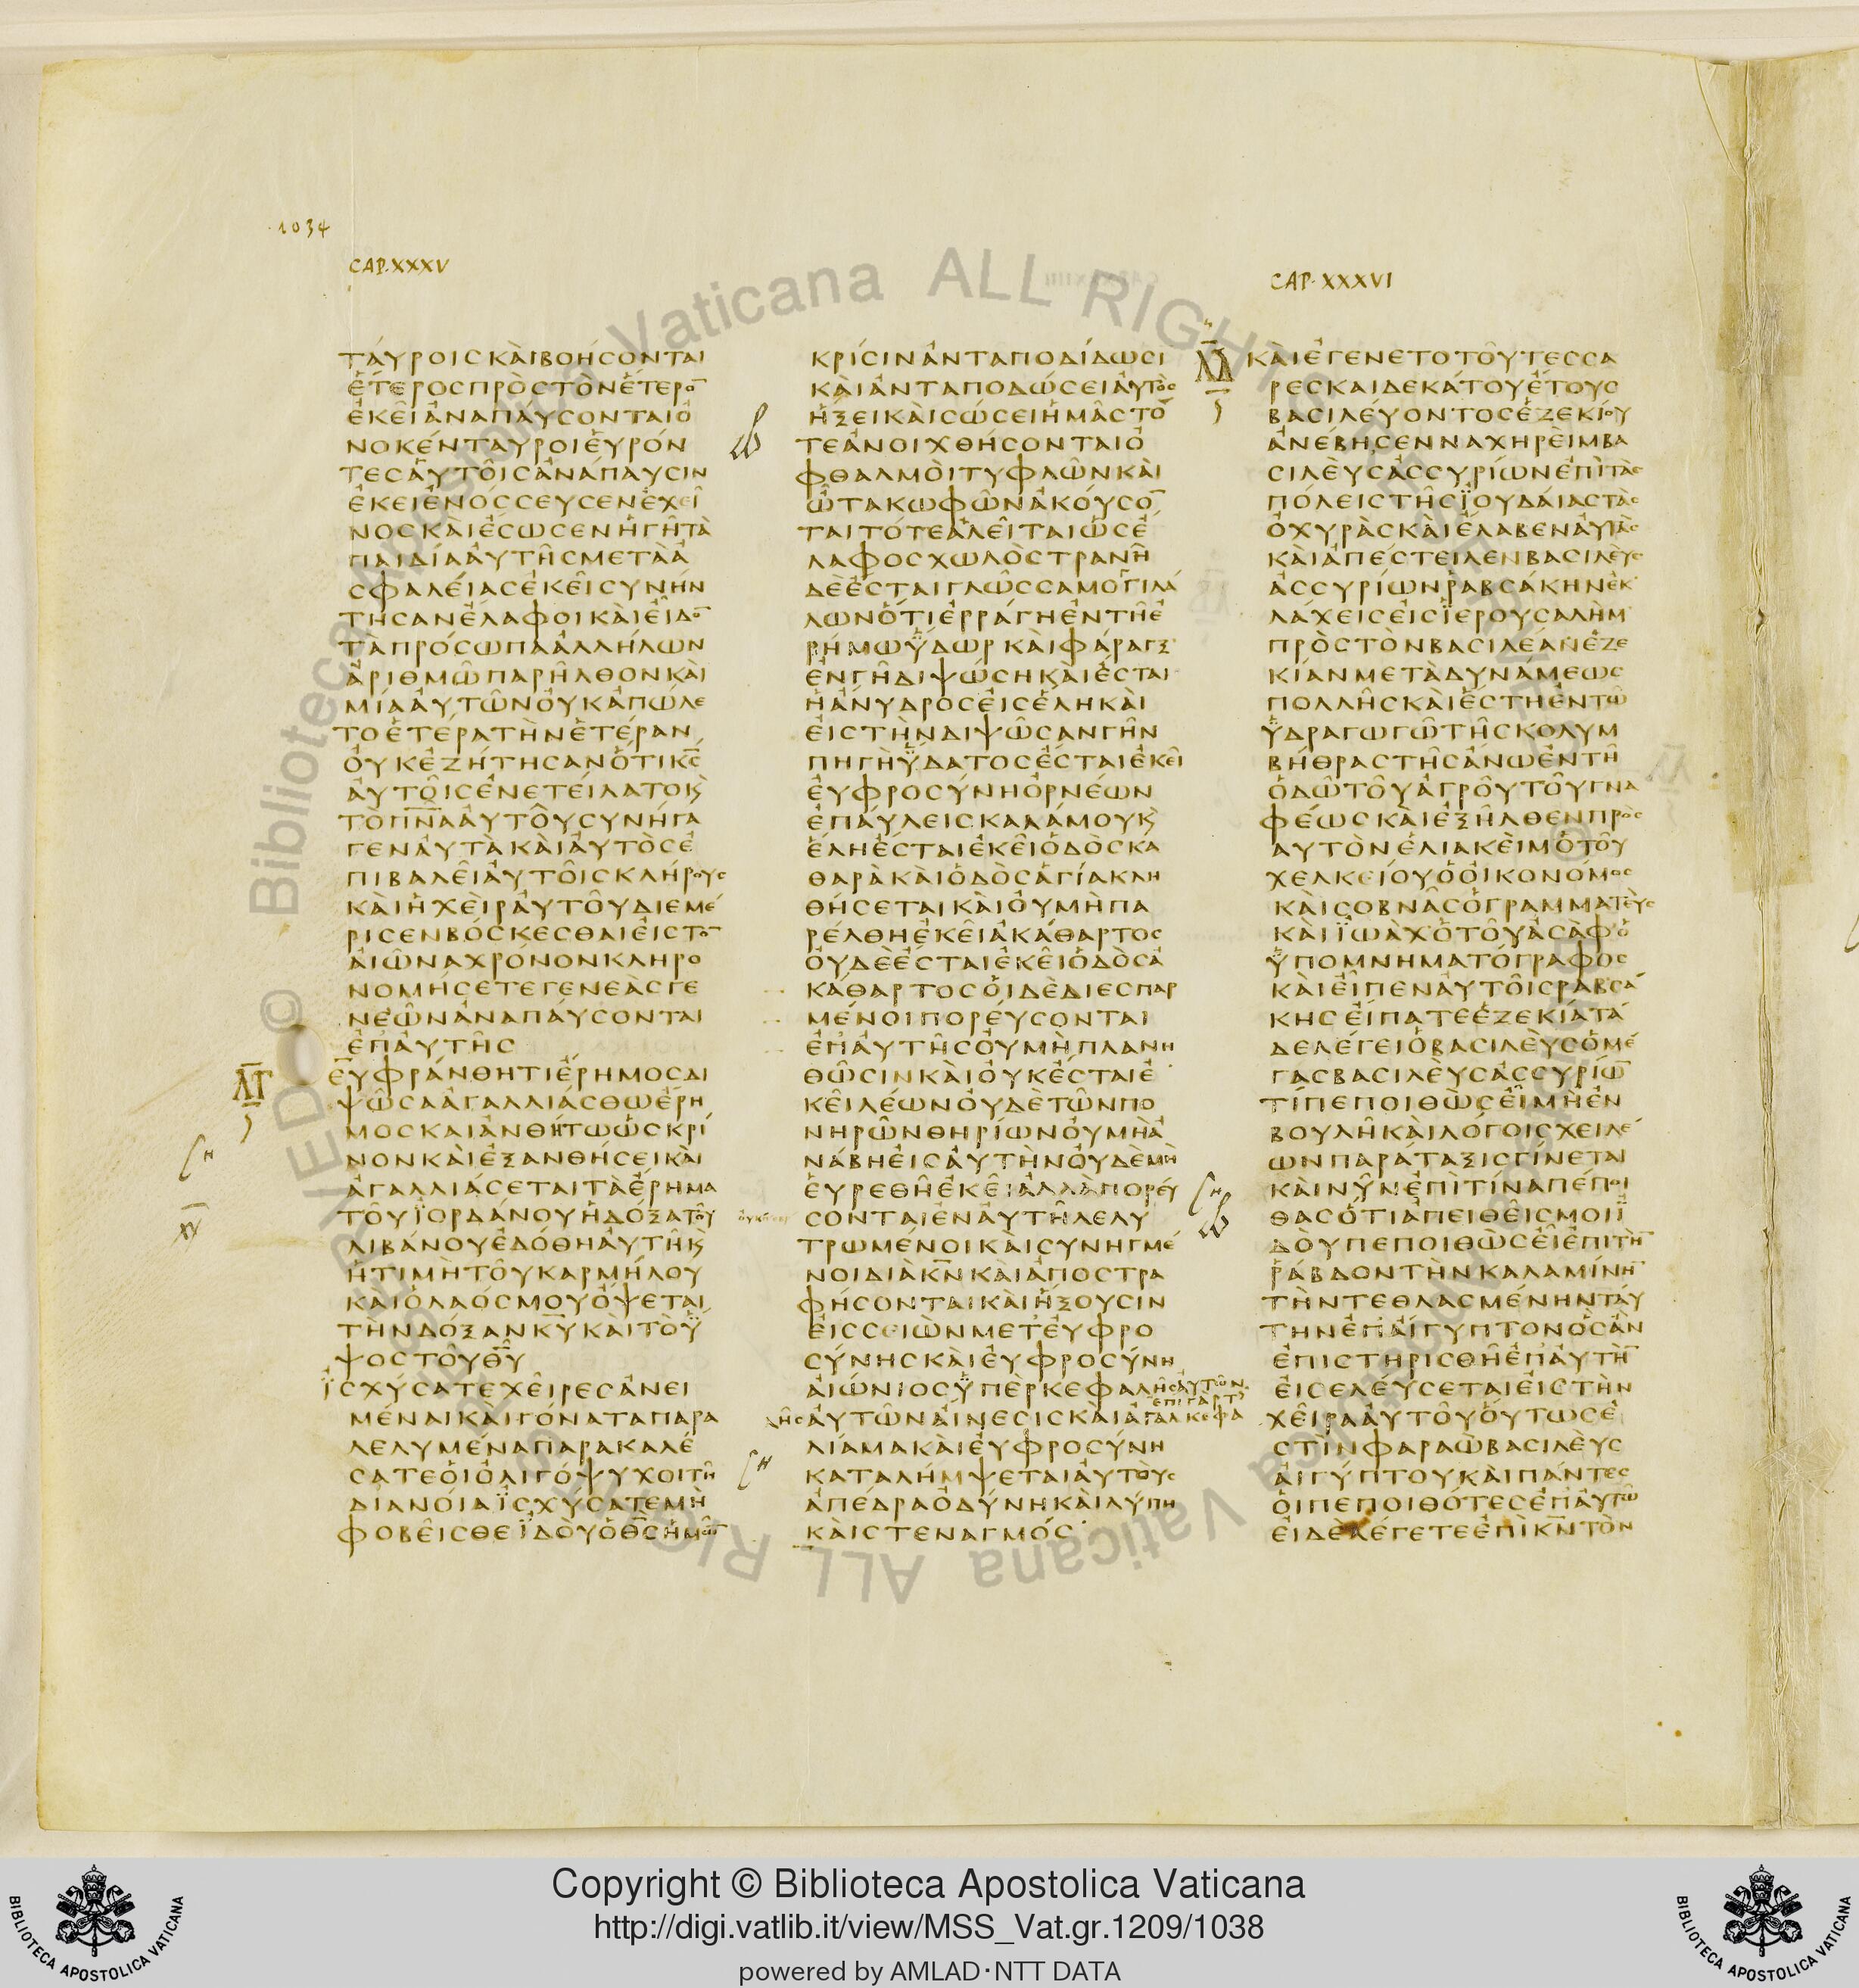 1034
CAP. XXXV
ΤΑΥΡΟΙΣΚΑΙΒΟΗΣΟΝΤΑΙ
ΕΤΕΡΟΣΠΡΟΣΤΟΝΕΤΕΡΟ̅
ΕΚΕΙΑΝΑΠΑΥΣΟΝΤΑΙΟ
ΝΟΚΕΝΤΑΥΡΟΙΕΥΡΟΝ
ΤΕΣΑΥΤΟΙΣΑΝΑΠΑΥΣΙΝ
ΕΚΕΙΕΝΟΣΣΕΥΣΕΝΕΧΕΙ
ΝΟΣΚΑΙΕΣΩΣΕΝΗΓΗΤΑ
ΠΑΙΔΙΑΑΥΤΗΣΜΕΤΑΑ
ΣΦΑΛΕΙΑΣΕΚΕΙΣΥΝΗΝ
ΤΗΣΑΝΕΛΑΦΟΙΚΑΙΕΙΔΟ̅
ΤΑΠΡΟΣΩΠΑΑΛΛΗΛΩΝ
ΑΡΙΘΜΩΠΑΡΗΛΘΟΝΚΑΙ
ΜΙΑΑΥΤΩΝΟΥΚΑΠΩΛΕ
ΤΟΕΤΕΡΑΤΗΝΕΤΕΡΑΝ
ΟΥΚΕΖΗΤΗΣΑΝΟΤΙΚ̅Σ̅
ΑΥΤΟΙΣΕΝΕΤΕΙΛΑΤΟΚϗ
ΤΟΠ̅Ν̅Α̅ΑΥΤΟΥΣΥΝΗΓΑ
ΓΕΝΑΥΤΑΚΑΙΑΥΤΟΣΕ
ΠΙΒΑΛΕΙΑΥΤΟΙΣΚΛΗΡΟΥΣ
ΚΑΙΗΧΕΙΡΑΥΤΟΥΔΙΕΜΕ
ΡΙΣΕΝΒΟΣΚΕΣΘΑΙΕΙΣΤΟ̅
ΑΙΩΝΑΧΡΟΝΟΝΚΛΗΡΟ
ΝΟΜΗΣΕΤΕΓΕΝΕΑΣΓΕ
ΝΕΩΝΑΝΑΠΑΥΣΟΝΤΑΙ
ΕΠΑΥΤΗΣ
Λ̅Γ̅ ΕΥΦΡΑΝΘΗΤΙΕΡΗΜΟΣΔΙ
ΨΩΣΑΑΓΑΛΛΙΑΣΘΩΕΡΗ
ΜΟΣΚΑΙΑΝΘΗΤΩΩΣΚΡΙ
ΝΟΝΚΑΙΕΞΑΝΘΗΣΕΙΚΑΙ
ΑΓΑΛΛΙΑΣΕΤΑΙΤΑΕΡΗΜΑ
ΤΟΥΪΟΡΔΑΝΟΥΗΔΟΞΑΤΟΥ
ΛΙΒΑΝΟΥΕΔΟΘΗΑΥΤΗϗ
ΗΤΙΜΗΤΟΥΚΑΡΜΗΛΟΥ
ΚΑΙΟΛΑΟΣΜΟΥΟΨΕΤΑΙ
ΤΗΝΔΟΞΑΝΚ̅Υ̅ΚΑΙΤΟΫ
ΨΟΣΤΟΥΘ̅Υ̅
ΪΣΧΥΣΑΤΕΧΕΙΡΕΣΑΝΕΙ
ΜΕΝΑΙΚΑΙΓΟΝΑΤΑΠΑΡΑ
ΛΕΛΥΜΕΝΑΠΑΡΑΚΑΛΕ
ΣΑΤΕΟΙΟΛΙΓΟΨΥΧΟΙΤΗ
ΔΙΑΝΟΙΑΪΣΧΥΣΑΤΕΜΗ
ΦΟΒΕΙΣΘΕΪΔΟΥΟΘ̅Σ̅ΗΜΩ̅
ΚΡΙΣΙΝΑΝΤΑΠΟΔΙΔΩΣΙ
ΚΑΙΑΝΤΑΠΟΔΩΣΕΙΑΥΤΟΣ
ΗΞΕΙΚΑΙΣΩΣΕΙΗΜΑΣΤΟ
ΤΕΑΝΟΙΧΘΗΣΟΝΤΑΙΟ
ΦΘΑΛΜΟΙΤΥΦΛΩΝΚΑΙ
ΩΤΑΚΩΦΩΝΑΚΟΥΣΟ̅
ΤΑΙΤΟΤΕΑΛΕΙΤΑΙΩΣΕ
ΛΑΦΟΣΧΩΛΟΣΤΡΑΝΗ
ΔΕΕΣΤΑΙΓΛΩΣΣΑΜΟΓΙΛΑ
ΛΩΝΟΤΙΕΡΡΑΓΗΕΝΤΗΕ
ΡΗΜΩΫΔΩΡΚΑΙΦΑΡΑΓΞ
ΕΝΓΗΔΙΨΩΣΗΚΑΙΕΣΤΑΙ
ΗΑΝΥΔΡΟΣΕΙΣΕΛΗΚΑΙ
ΕΙΣΤΗΝΔΙΨΩΣΑΝΓΗΝ
ΠΗΓΗΫΔΑΤΟΣΕΣΤΑΙΕΚΕΙ
ΕΥΦΡΟΣΥΝΗΟΡΝΕΩΝ
ΕΠΑΥΛΕΙΣΚΑΛΑΜΟΥϗ
ΕΛΗΕΣΤΑΙΕΚΕΙΟΔΟΣΚΑ
ΘΑΡΑΚΑΙΟΔΟΣΑΓΙΑΚΛΗ
ΘΗΣΕΤΑΙΚΑΙΟΥΜΗΠΑ
ΡΕΛΘΗΕΚΕΙΑΚΑΘΑΡΤΟΣ
ΟΥΔΕΕΣΤΑΙΕΚΕΙΟΔΟΣΑ
ΚΑΘΑΡΤΟΣΟΙΔΕΔΙΕΣΠΑΡ
ΜΕΝΟΙΠΟΡΕΥΣΟΝΤΑΙ
ΕΠΑΥΤΗΣΟΥΜΗΠΛΑΝΗ
ΘΩΣΙΝΚΑΙΟΥΚΕΣΤΑΙΕ
ΚΕΙΛΕΩΝΟΥΔΕΤΩΝΠΟ
ΝΗΡΩΝΘΗΡΙΩΝΟΥΜΗΑ
ΝΑΒΗΕΙΣΑΥΤΗΝΟΥΔΕΜΗ
ΕΥΡΕΘΗΕΚΕΙΑΛΛΑΠΟΡΕΥ
ΣΟΝΤΑΙΕΝΑΥΤΗΛΕΛΥ
ΤΡΩΜΕΝΟΙΚΑΙΣΥΝΗΓΜΕ
ΝΟΙΔΙΑΚ̅Ν̅ΚΑΙΑΠΟΣΤΡΑ
ΦΗΣΟΝΤΑΙΚΑΙΗΞΟΥΣΙΝ
ΕΙΣΣΕΙΩΝΜΕΤΕΥΦΡΟ
ΣΥΝΗΣΚΑΙΕΥΦΡΟΣΥΝΗ
ΑΙΩΝΙΟΣΫΠΕΡΚΕΦΑΛΗΣΑΥΤΩΝ
ΕΠΙΓΑΡΤ
ΛΗΣΑΥΤΩΝΑΙΝΕΣΙΣΚΑΙΑΓΑΛΚΕΦΑ
ΛΙΑΜΑΚΑΙΕΥΦΡΟΣΥΝΗ
ΚΑΤΑΛΗΜΨΕΤΑΙΑΥΤΟΥΣ
ΑΠΕΔΡΑΟΔΥΝΗΚΑΙΛΥΠΗ
ΚΑΙΣΤΕΝΑΓΜΟΣ
CAP. XXXVI
Λ̅Δ̅ ΚΑΙΕΓΕΝΕΤΟΤΟΥΤΕΣΣΑ
ΡΕΣΚΑΙΔΕΚΑΤΟΥΕΤΟΥΣ
ΒΑΣΙΛΕΥΟΝΤΟΣΕΖΕΚΙΟΥ
ΑΝΕΒΗΣΕΝΝΑΧΗΡΕΙΜΒΑ
ΣΙΛΕΥΣΑΣΣΥΡΙΩΝΕΠΙΤΑΣ
ΠΟΛΕΙΣΤΗΣΪΟΥΔΑΙΑΣΤΑΣ
ΟΧΥΡΑΣΚΑΙΕΛΑΒΕΝΑΥΤΑΣ
ΚΑΙΑΠΕΣΤΕΙΛΕΝΒΑΣΙΛΕΥΣ
ΑΣΣΥΡΙΩΝΡΑΒΣΑΚΗΝΕΚ
ΛΑΧΕΙΣΕΙΣΪΕΡΟΥΣΑΛΗΜ
ΠΡΟΣΤΟΝΒΑΣΙΛΕΑΝΕΖΕ
ΚΙΑΝΜΕΤΑΔΥΝΑΜΕΩΣ
ΠΟΛΛΗΣΚΑΙΕΣΤΗΕΝΤΩ
ΫΔΡΑΓΩΓΩΤΗΣΚΟΛΥΜ
ΒΗΘΡΑΣΤΗΣΑΝΩΕΝΤΗ
ΟΔΩΤΟΥΑΓΡΟΥΤΟΥΓΝΑ
ΦΕΩΣΚΑΙΕΞΗΛΘΕΝΠΡΟΣ
ΑΥΤΟΝΕΛΙΑΚΕΙΜΟΤΟΥ
ΧΕΛΚΕΙΟΥΟΟΙΚΟΝΟΜΟΣ
ΚΑΙΣΟΒΝΑΣΟΓΡΑΜΜΑΤΕΥΣ
ΚΑΙΪΩΑΧΟΤΟΥΑΣΑΦΟ
ΫΠΟΜΝΗΜΑΤΟΓΡΑΦΟΣ
ΚΑΙΕΙΠΕΝΑΥΤΟΙΣΡΑΒΣΑ
ΚΗΣΕΙΠΑΤΕΕΖΕΚΙΑΤΑ
ΔΕΛΕΓΕΙΟΒΑΣΙΛΕΥΣΟΜΕ
ΓΑΣΒΑΣΙΛΕΥΣΑΣΣΥΡΙΩ̅
ΤΙΠΕΠΟΙΘΩΣΕΙΜΗΕΝ
ΒΟΥΛΗΚΑΙΛΟΓΟΙΣΧΕΙΛΕ
ΩΝΠΑΡΑΤΑΞΙΣΓΙΝΕΤΑΙ
ΚΑΙΝΥΝΕΠΙΤΙΝΑΠΕΠΟΙ
ΘΑΣΟΤΙΑΠΕΙΘΕΙΣΜΟΙΪ
ΔΟΥΠΕΠΟΙΘΩΣΕΙΕΠΙΤΗ̅
ΡΑΒΔΟΝΤΗΝΚΑΛΑΜΙΝΗ̅
ΤΗΝΤΕΘΛΑΣΜΕΝΗΝΤΑΥ
ΤΗΝΕΠΑΙΓΥΠΤΟΝΟΣΑΝ
ΕΠΙΣΤΗΡΙΣΘΗΕΠΑΥΤΗ̅
ΕΙΣΕΛΕΥΣΕΤΑΙΕΙΣΤΗΝ
ΧΕΙΡΑΑΥΤΟΥΟΥΤΩΣΕ
ΣΤΙΝΦΑΡΑΩΒΑΣΙΛΕΥΣ
ΑΙΓΥΠΤΟΥΚΑΙΠΑΝΤΕΣ
ΟΙΠΕΠΟΙΘΟΤΕΣΕΠΑΥΤΩ
ΕΙΔΕΛΕΓΕΤΕΕΠΙΚ̅Ν̅ΤΟΝ
© Biblioteca Apostolica Vaticana ALL RIGHTS RESERVED
Copyright © Biblioteca Apostolica Vaticana
http://digi.vatlib.it/view/MSS_Vat.gr.1209/1038
powered by AMLAD·NTT DATA
BIBLIOTECA APOSTOLICA VATICANA
BIBLIOTECA APOSTOLICA VATICANA